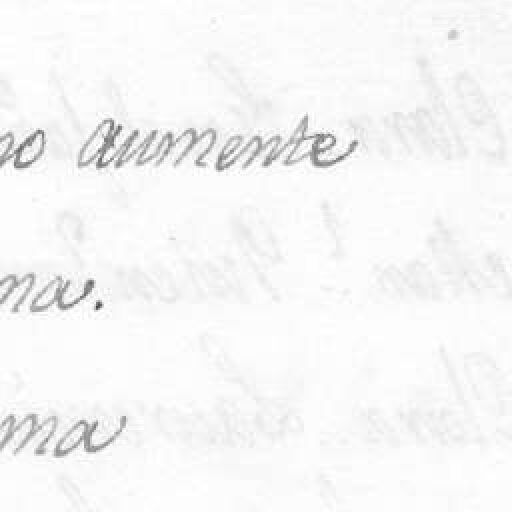 no aumente
ma.
ma